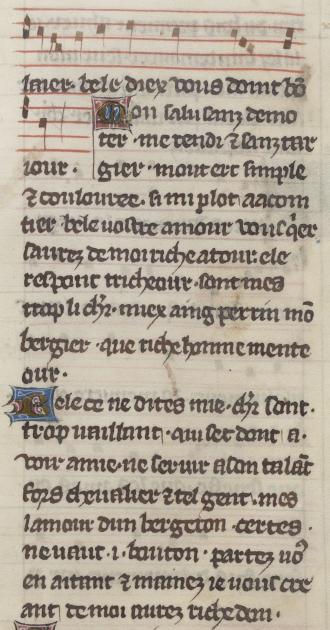 lauer. bele diex vous doint bō
on salu sanz demo
ter. me tendi ⁊ sanz tar
iour. gier. mout ert simple
⁊ coulouree. si mi plot aacoin
tier bele vostre amour vous q̄er
saurez de moi riche atour. ele
respont tricheour. sont mes
trop li chr̄. miex aing perrin mō
bergier. que riche homme mente
our.
ele ce ne dites mie. chr̄ sont.
trop vaillant. qui set dont a.
voir amie. ne servir a son talāt
fors chevalier ⁊ tel gent. mes
lamour dun bergeron. certes.
ne vaut .i. bouton. partez vō
en aitant ⁊ mamez ie vous cre
ant de moi aurez riche don.